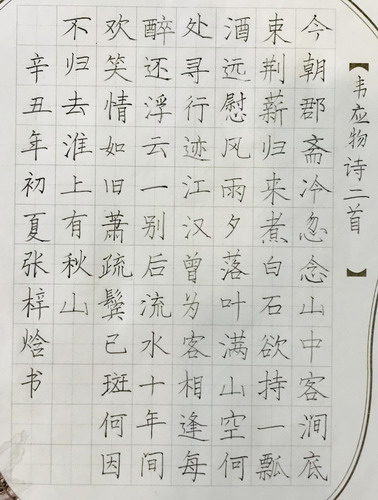 【韦应物诗二首】
今朝郡斋冷忽念山中客涧底
束荆薪归来煮白石欲持一瓢
酒远慰风雨夕落叶满山空何
处寻行迹江汉曾为客相逢每
醉还浮云一别后流水十年间
欢笑情如旧萧疏鬓已斑何因
不归去淮上有秋山
辛丑年初夏张梓焓书